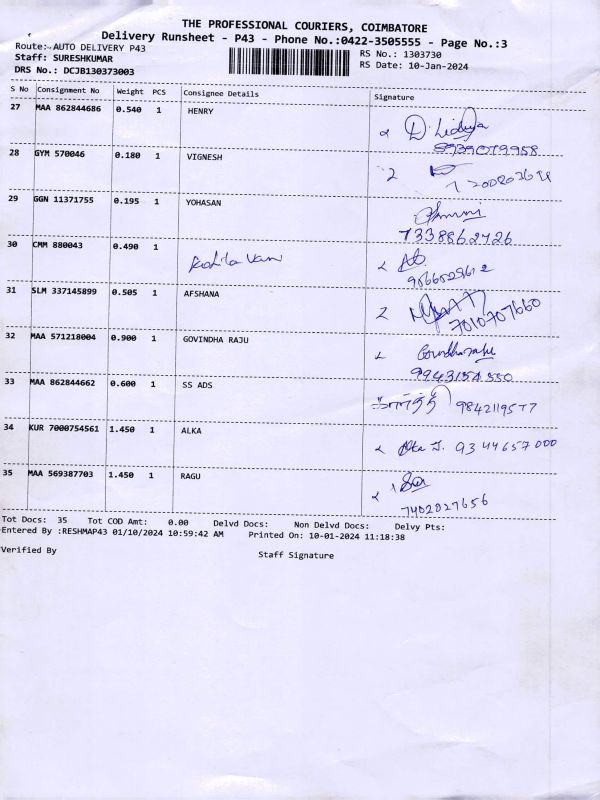 THE PROFESSIONAL COURIERS, COIMBATORE
Delivery Runsheet - P43 - Phone No.:0422-3505555 - Page No.:3
Route: AUTO DELIVERY P43
RS No.: 1303730
Staff: SURESHKUMAR
RS Date: 10-Jan-2024
DRS No.: DCJB130373003
S No Consignment No Weight PCS Consignee Details Signature
27 MAA 862844686 0.540 1 HENRY
8939079958
28 GYM 570046 0.180 1 VIGNESH
29 GGN 11371755 0.195 1 YOHASAN
7338862726
30 CMM 880043 0.490 1
31 SLM 337145899 0.505 1 AFSHANA
7010707660
32 MAA 571218004 0.900 1 GOVINDHA RAJU
9943154550
33 MAA 862844662 0.600 1 SS ADS
9842119577
34 KUR 7000754561 1.450 1 ALKA
9344657000
35 MAA 569387703 1.450 1 RAGU
7402027656
Tot Docs: 35 Tot COD Amt: 0.00 Delvd Docs: Non Delvd Docs: Delvy Pts:
Entered By :RESHMAP43 01/10/2024 10:59:42 AM Printed On: 10-01-2024 11:18:38
Verified By
Staff Signature